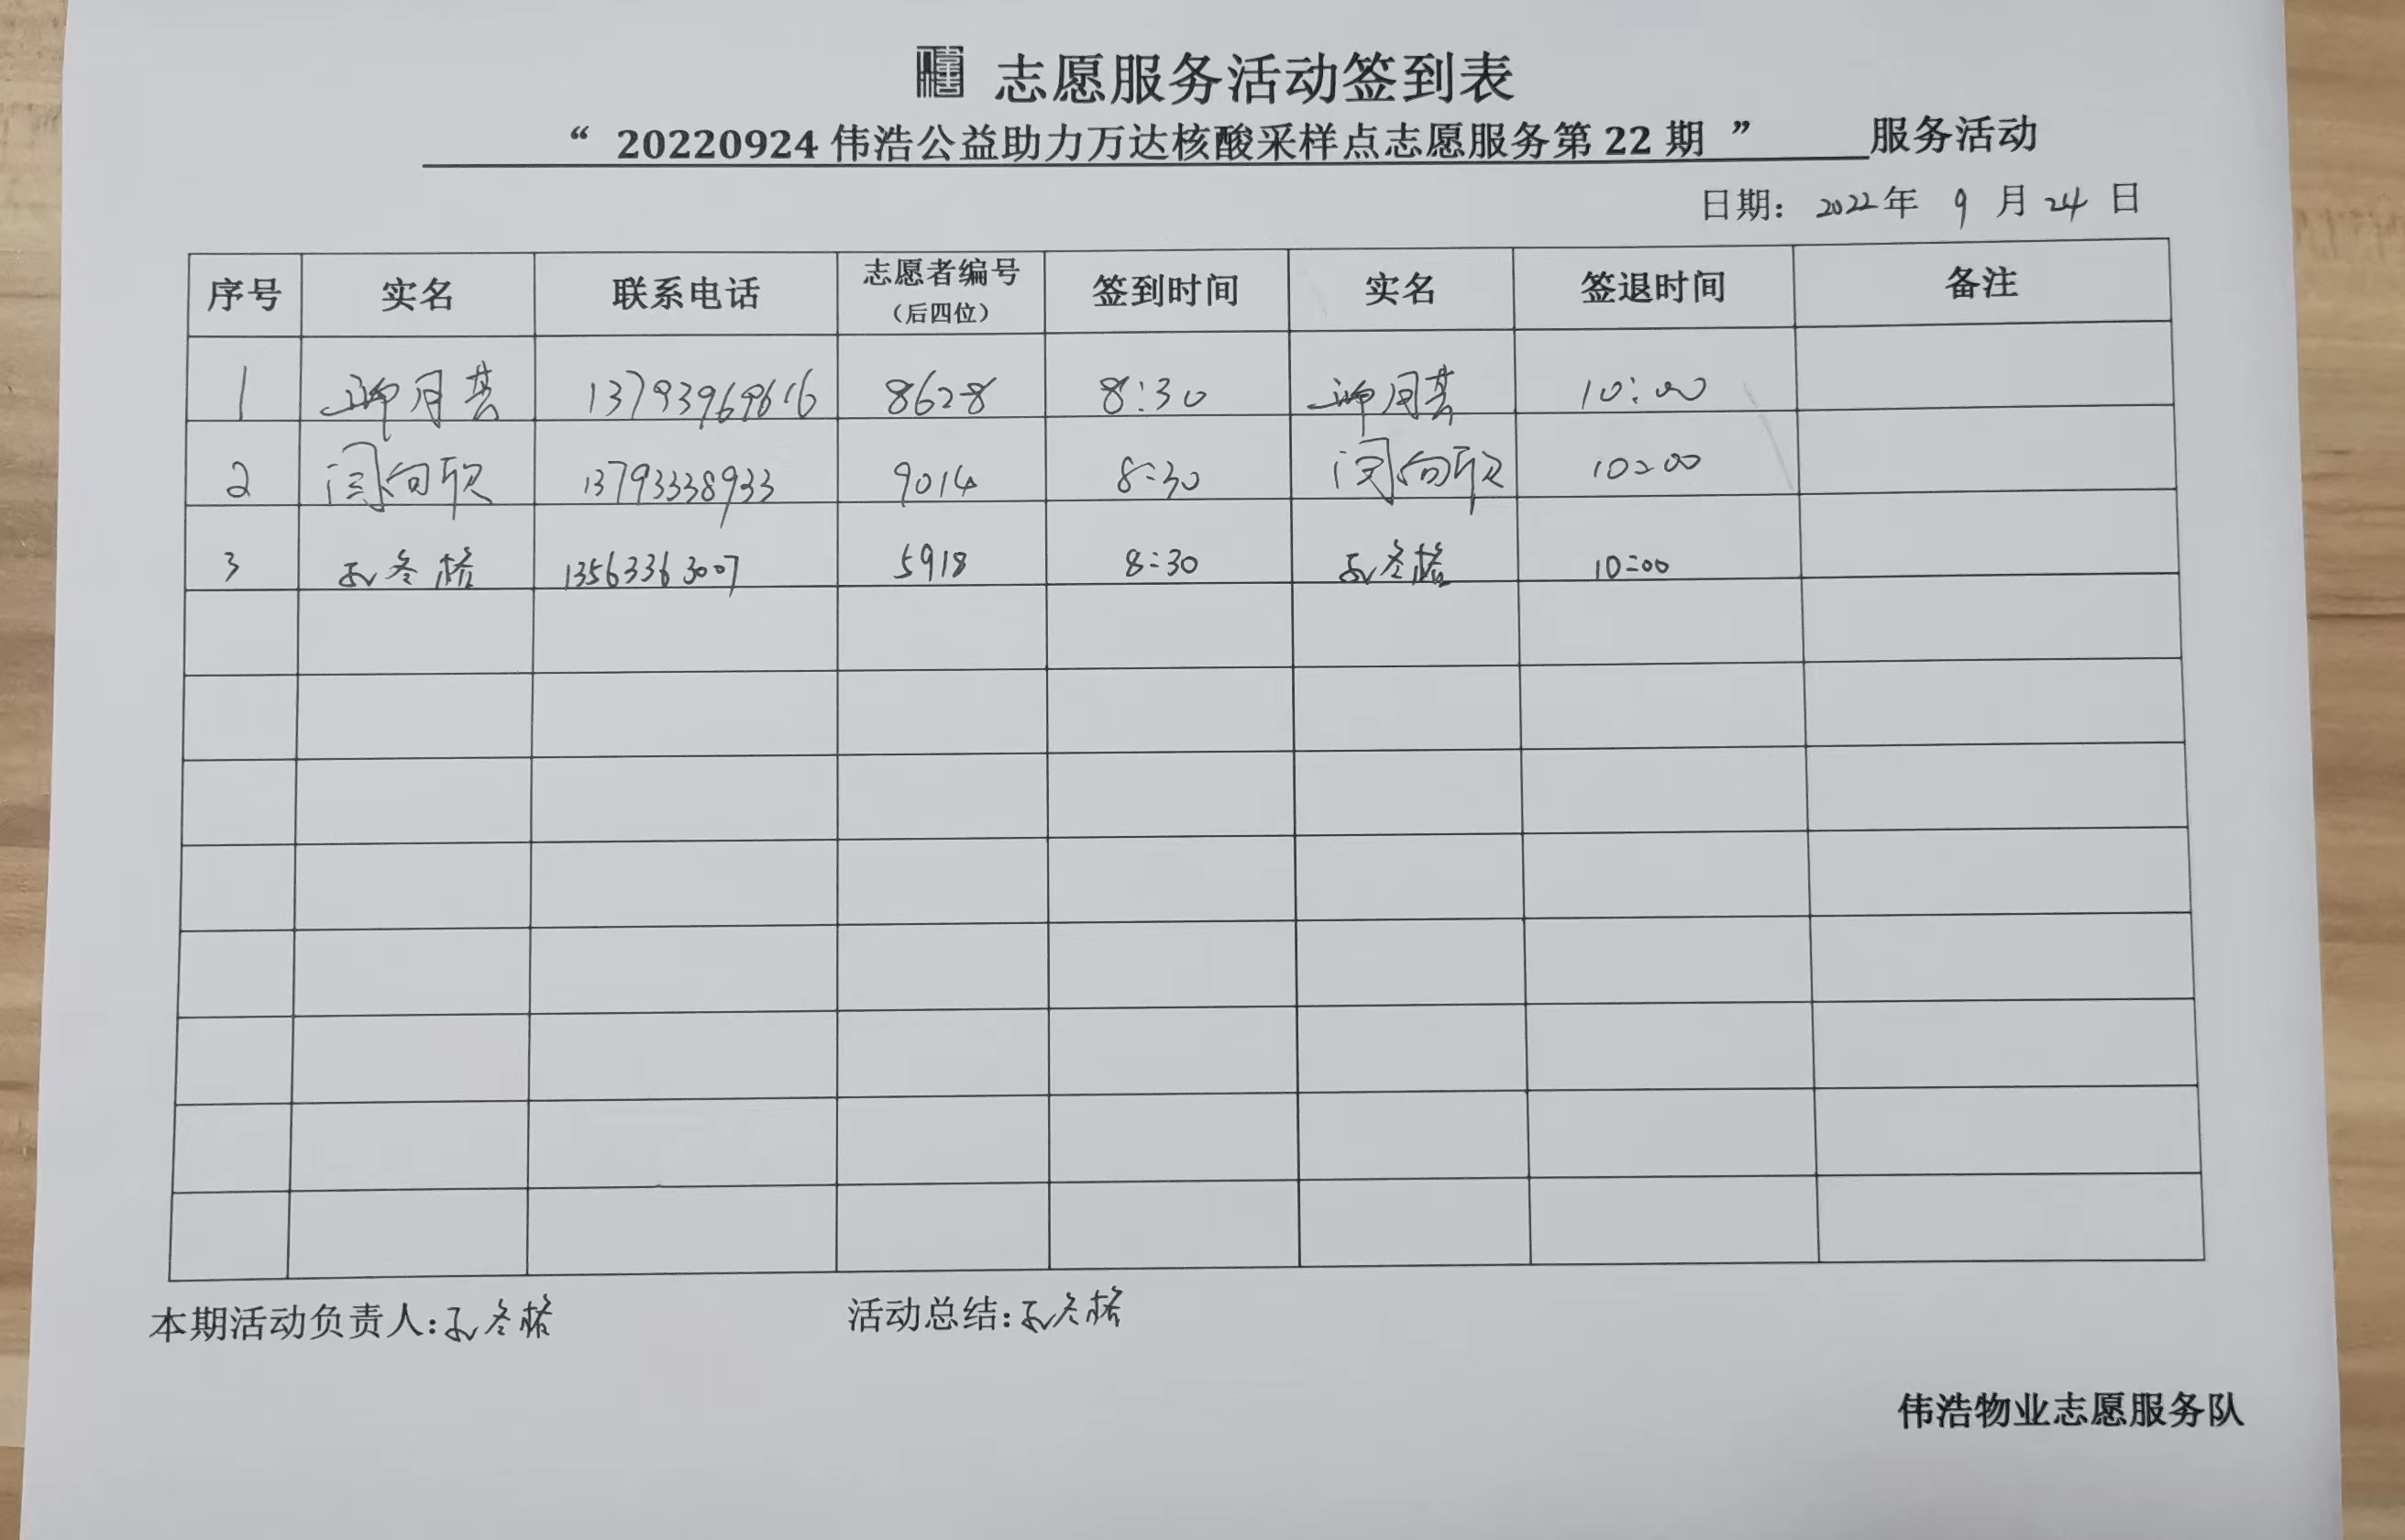 志愿服务活动签到表
“ 20220924 伟浩公益助力万达核酸采样点志愿服务第 22 期 ” 服务活动
日期： 2022 年 9 月 24 日
序号 实名 联系电话 志愿者编号（后四位） 签到时间 实名 签退时间 备注
1 13793969616 8628 8:30 10:00
2 闫向欣 13793338933 9014 8:30 闫向欣 10:00
3 孔冬格 13563363007 5918 8:30 孔冬格 10:00
本期活动负责人:孔冬格 活动总结:孔冬格
伟浩物业志愿服务队